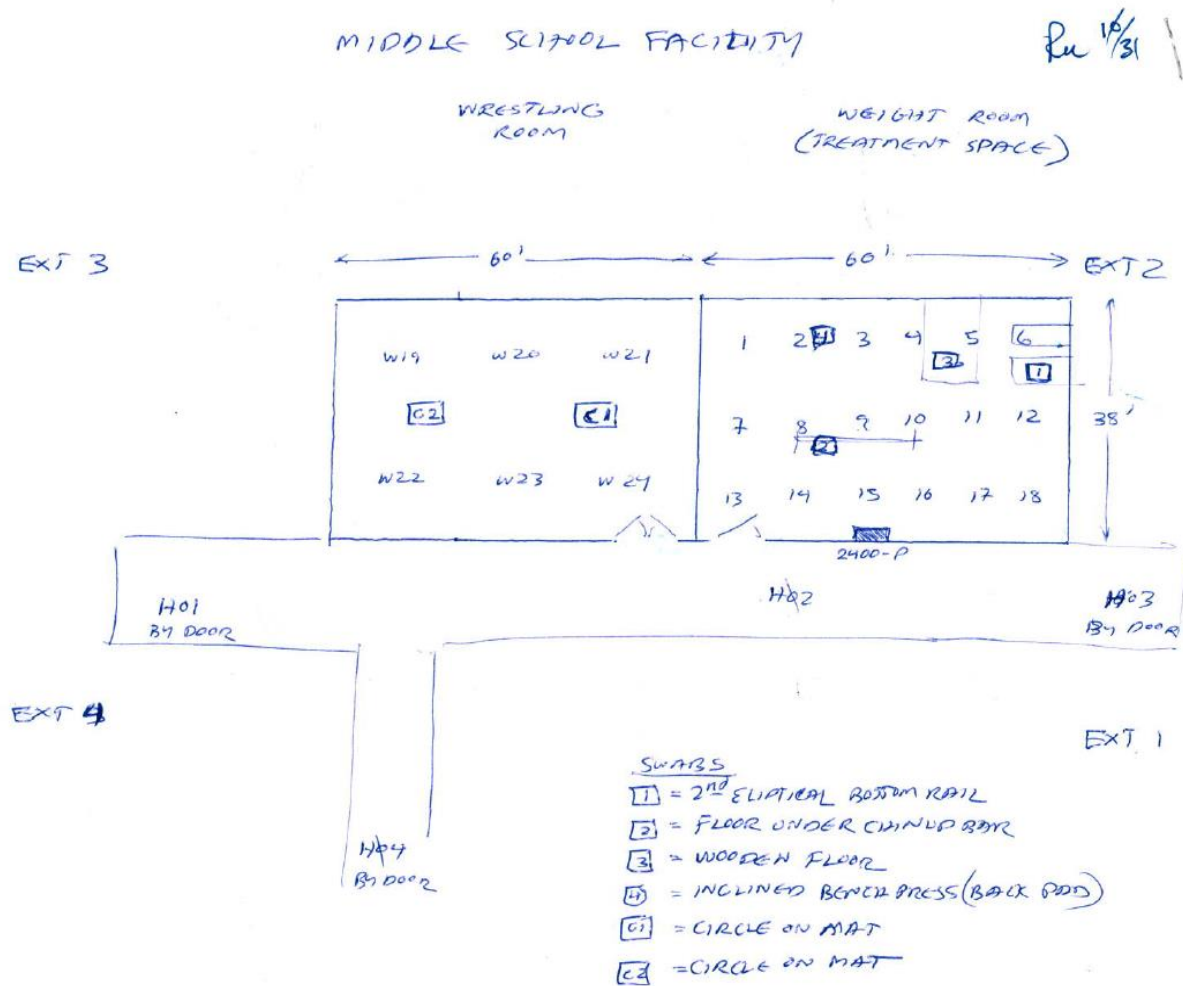 MIDDLE SCHOOL FACILITY
10/31
WRESTLING
ROOM
WEIGHT ROOM
(TREATMENT SPACE)
EXT 3
60'
60'
EXT 2
1 2 4 3 4 5 6
W19 W20 W21
3 1
C2 C1
7 8 9 10 11 12
38'
2
W22 W23 W24
13 14 15 16 17 18
2400-P
H01
BY DOOR
H02
H03
BY DOOR
EXT 4
EXT 1
SWABS
1 = 2nd ELIPTICAL BOTTOM RAIL
2 = FLOOR UNDER CHINUP BAR
3 = WOODEN FLOOR
4 = INCLINED BENCH PRESS (BACK PAD)
C1 = CIRCLE ON MAT
C2 = CIRCLE ON MAT
H04
BY DOOR